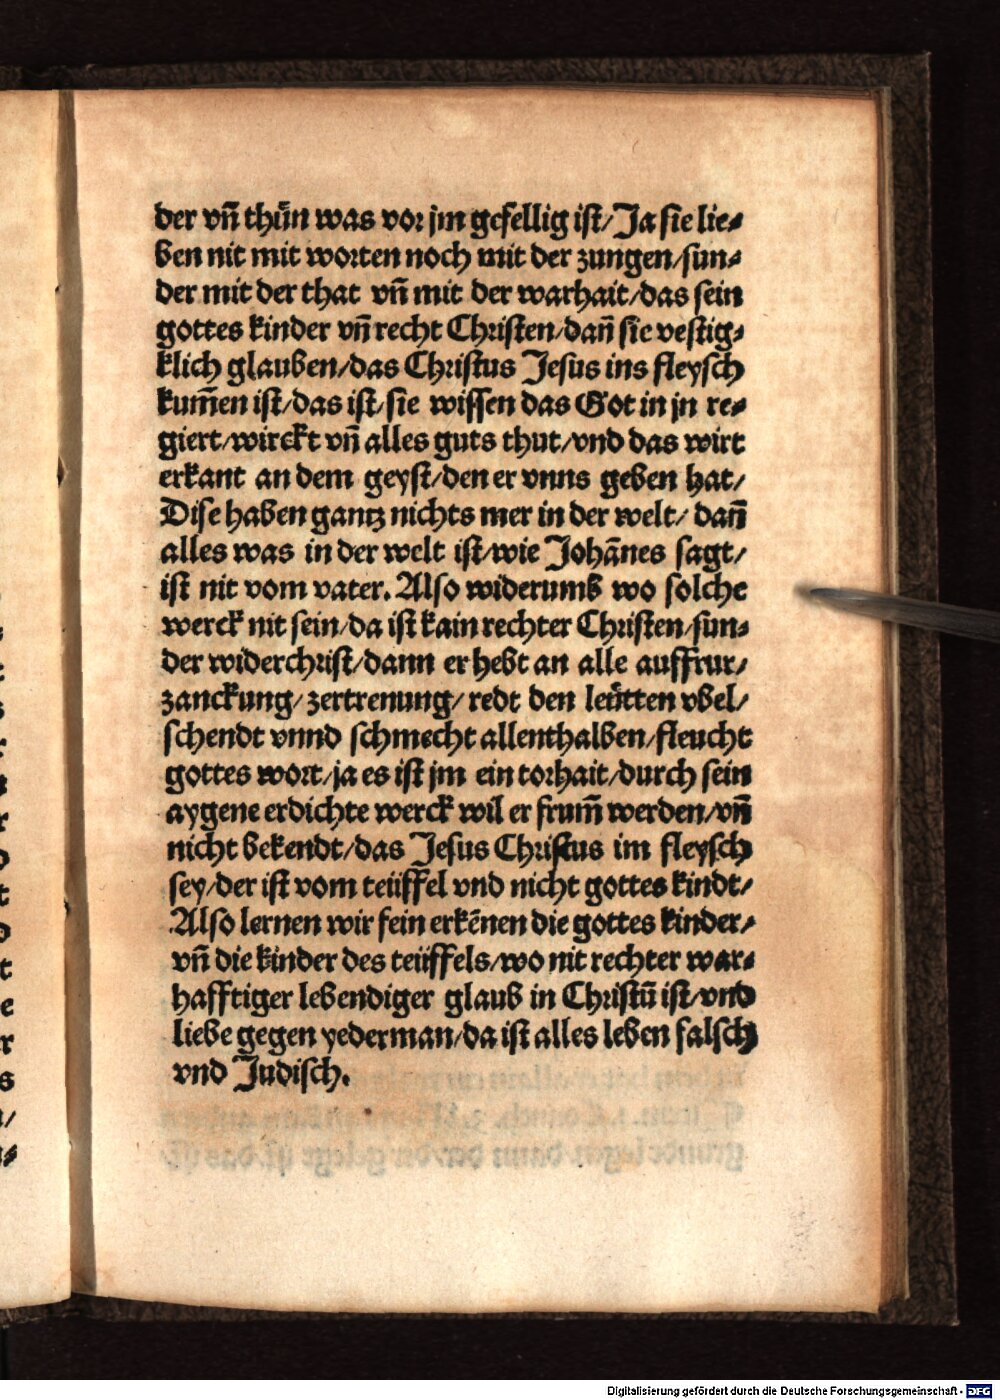 der vn̄ thůn was vor jm gefellig ist/ Ja sie lie⸗
ben nit mit worten noch mit der zungen/sun⸗
der mit der that vn̄ mit der warhait/das sein
gottes kinder vn̄ recht Christen/dan̄ sie vestig⸗
klich glauben/das Christus Jesus ins fleysch
kum̄en ist/das ist/sie wissen das Got in jn re⸗
giert/wirckt vn̄ alles guts thut/vnd das wirt
erkant an dem geyst/den er vnns geben hat/
Dise haben gantz nichts mer in der welt/ dan̄
alles was in der welt ist/wie Johānes sagt/
ist nit vom vater. Also widerumb wo solche
werck nit sein/da ist kain rechter Christen/sun⸗
der widerchrist/dann er hebt an alle auffrur/
zanckung/ zertrenung/ redt den leütten vbel/
schendt vnnd schmecht allenthalben/fleucht
gottes wort/ja es ist jm ein torhait/durch sein
aygene erdichte werck wil er frum̄ werden/vn̄
nicht bekendt/das Jesus Christus im fleysch
sey/der ist vom teüffel vnd nicht gottes kindt/
Also lernen wir fein erkēnen die gottes kinder/
vn̄ die kinder des teüffels/wo nit rechter war⸗
hafftiger lebendiger glaub in Christū ist/vnd
liebe gegen yederman/da ist alles leben falsch
vnd Judisch.
Digitalisierung gefördert durch die Deutsche Forschungsgemeinschaft - DFG